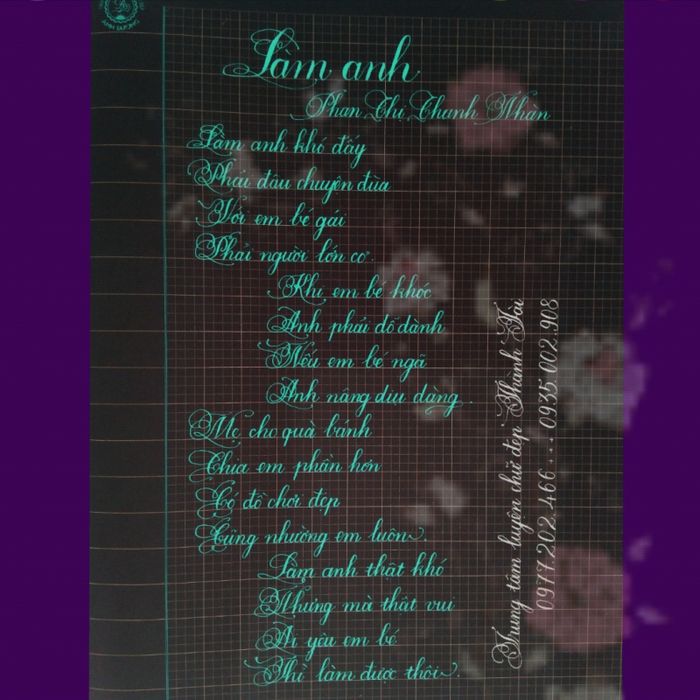 Làm anh
Phan Thị Thanh Nhàn
Làm anh khó đấy
Phải đâu chuyện đùa
Với em bé gái
Phải người lớn cơ.
Khi em bé khóc
Anh phải dỗ dành
Nếu em bé ngã
Anh nâng dịu dàng.
Mẹ cho quà bánh
Chia em phần hơn
Có đồ chơi đẹp
Cũng nhường em luôn.
Làm anh thật khó
Nhưng mà thật vui
Ai yêu em bé
Thì làm được thôi.
Trung tâm luyện chữ đẹp Thành Tài
0977.202.466...0935.002.908